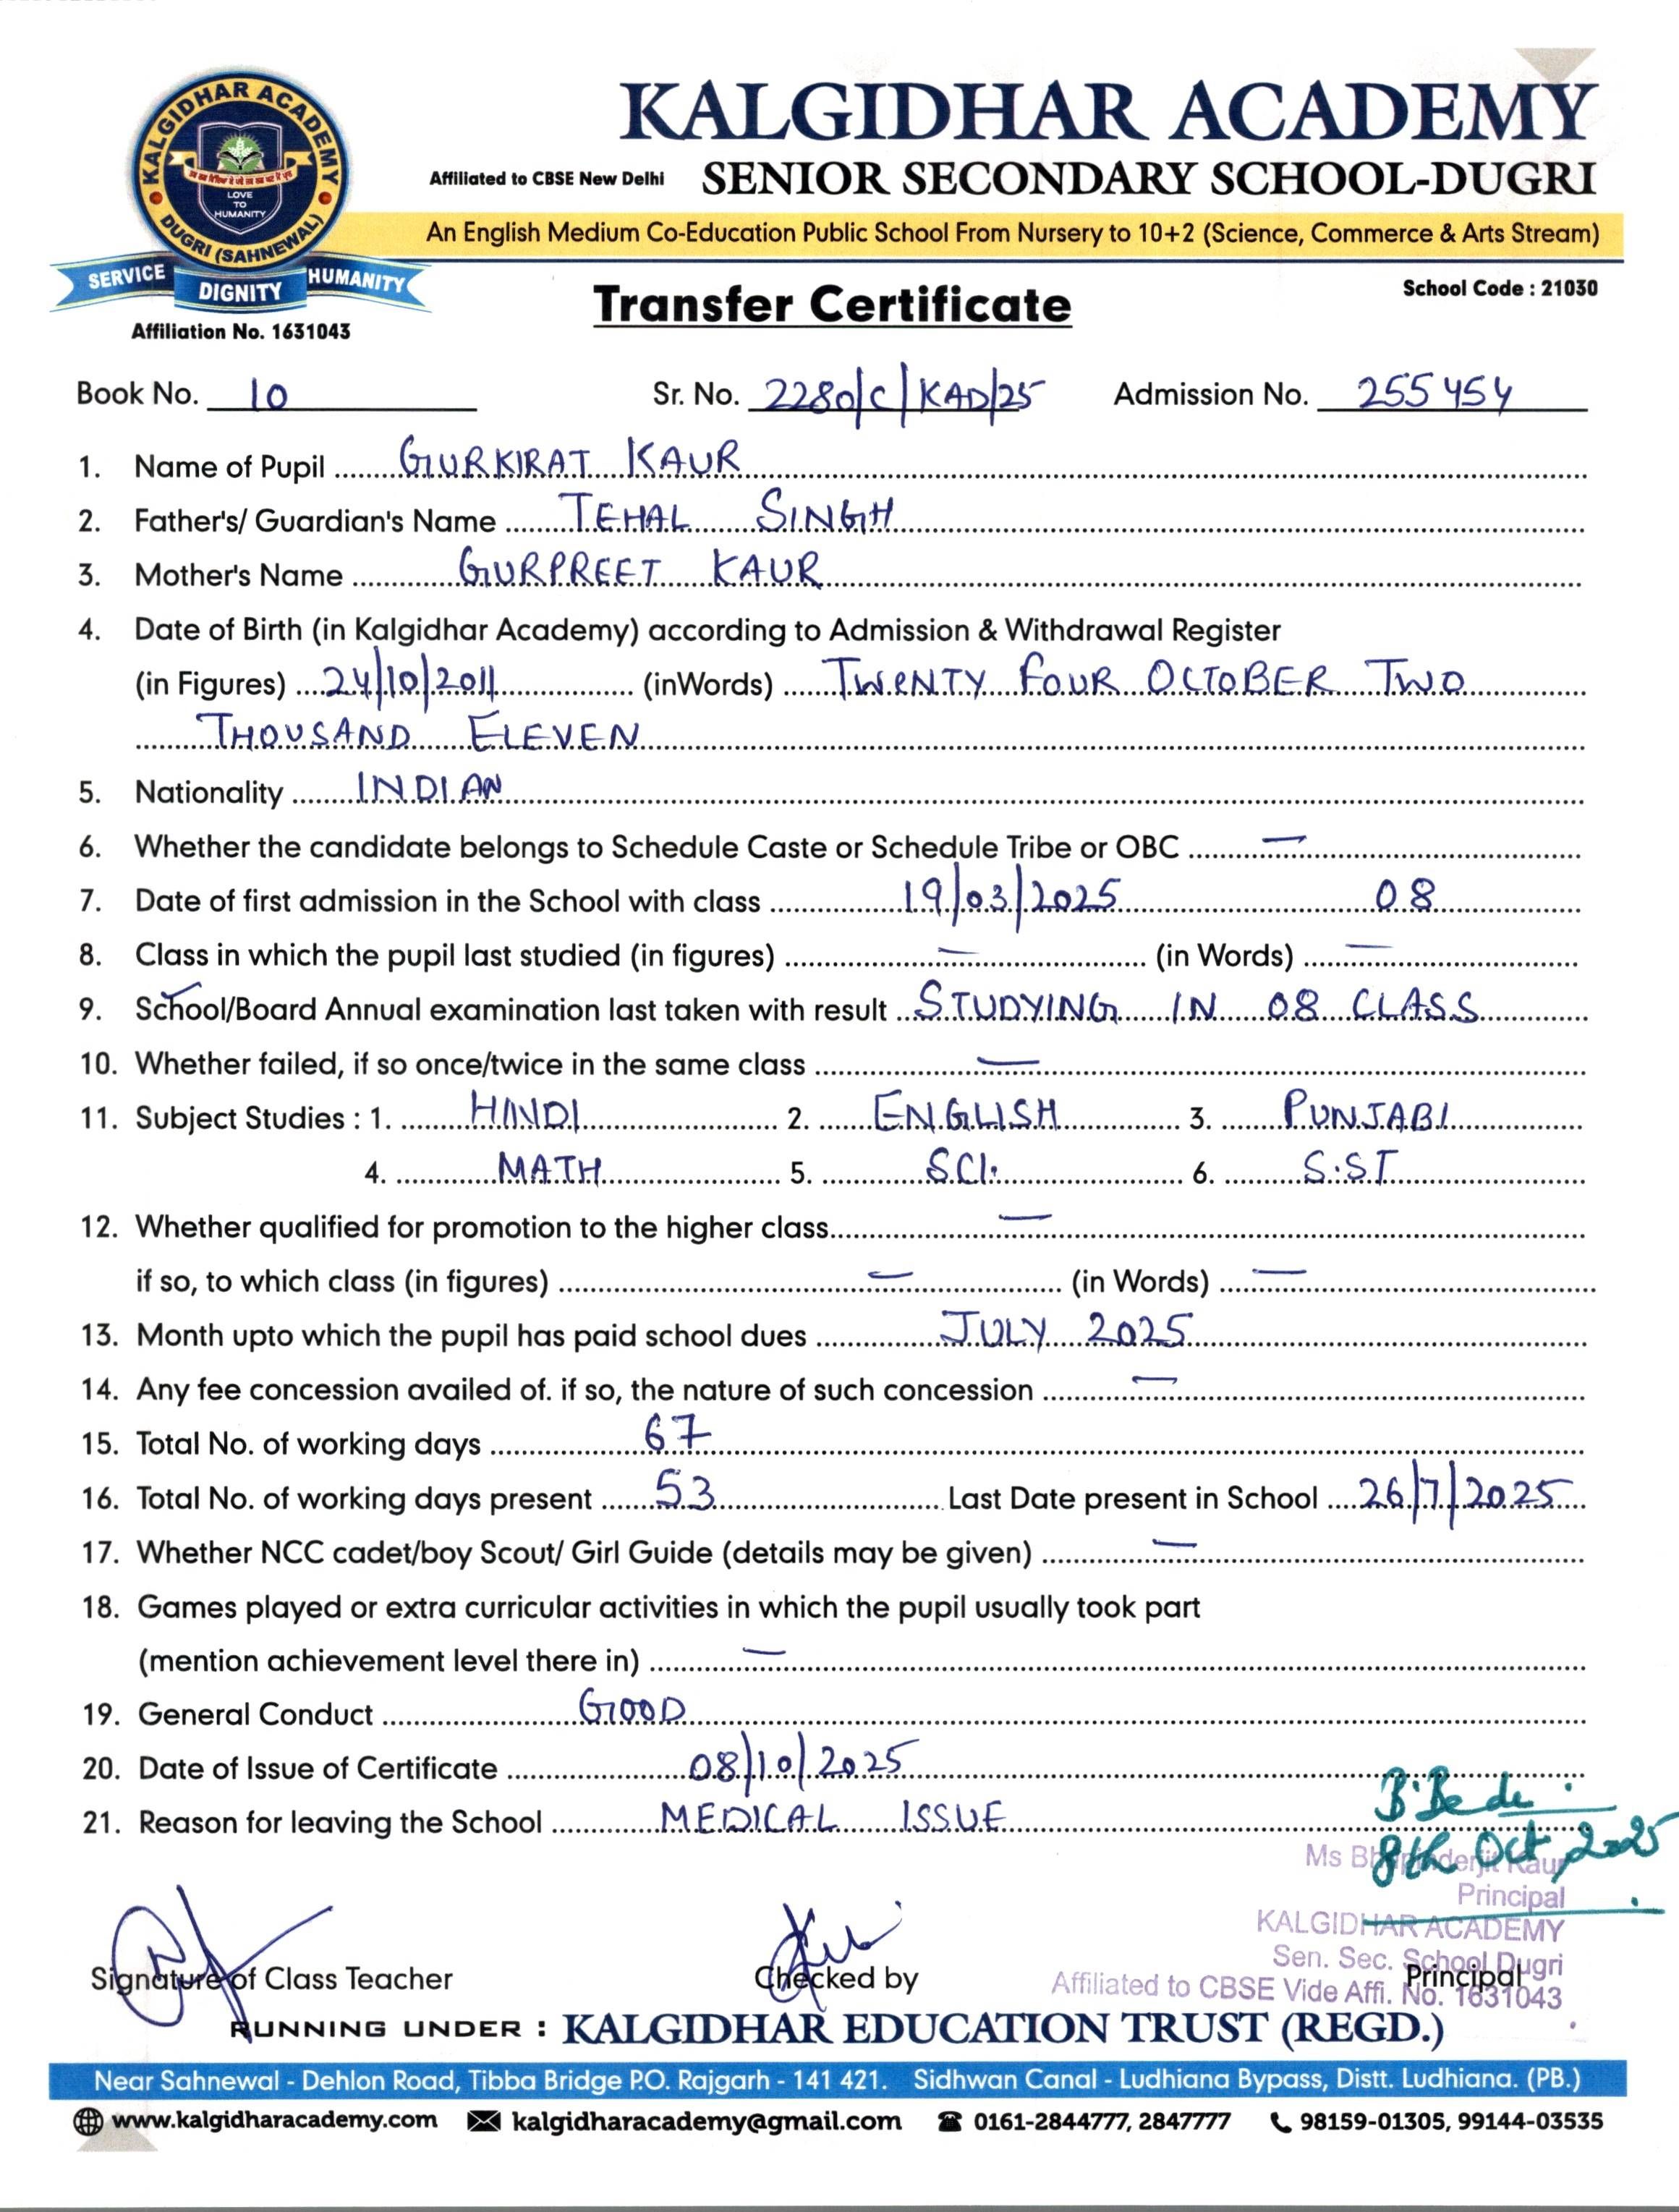 KALGIDHAR ACADEMY
DUGRI (SAHNEWAL)
LOVE
TO
HUMANITY
SERVICE DIGNITY HUMANITY
Affiliation No. 1631043
KALGIDHAR ACADEMY
Affiliated to CBSE New Delhi SENIOR SECONDARY SCHOOL-DUGRI
An English Medium Co-Education Public School From Nursery to 10+2 (Science, Commerce & Arts Stream)
School Code : 21030
Transfer Certificate
Book No. 10 Sr. No. 2280/C/KAD/25 Admission No. 255454
1. Name of Pupil GURKIRAT KAUR
2. Father's/ Guardian's Name TEHAL SINGH
3. Mother's Name GURPREET KAUR
4. Date of Birth (in Kalgidhar Academy) according to Admission & Withdrawal Register
(in Figures) 24/10/2011 (inWords) TWENTY FOUR OCTOBER TWO
THOUSAND ELEVEN
5. Nationality INDIAN
6. Whether the candidate belongs to Schedule Caste or Schedule Tribe or OBC —
7. Date of first admission in the School with class 19/03/2025 08
8. Class in which the pupil last studied (in figures) — (in Words) —
9. School/Board Annual examination last taken with result STUDYING IN 08 CLASS
10. Whether failed, if so once/twice in the same class —
11. Subject Studies : 1. HINDI 2. ENGLISH 3. PUNJABI
4. MATH 5. SCI. 6. S.ST
12. Whether qualified for promotion to the higher class —
if so, to which class (in figures) — (in Words) —
13. Month upto which the pupil has paid school dues JULY 2025
14. Any fee concession availed of. if so, the nature of such concession —
15. Total No. of working days 67
16. Total No. of working days present 53 Last Date present in School 26/7/2025
17. Whether NCC cadet/boy Scout/ Girl Guide (details may be given) —
18. Games played or extra curricular activities in which the pupil usually took part
(mention achievement level there in) —
19. General Conduct GOOD
20. Date of Issue of Certificate 08/10/2025
21. Reason for leaving the School MEDICAL ISSUE
8th Oct 2025
Ms Kaur
Principal
KALGIDHAR ACADEMY
Sen. Sec. School Dugri
Affiliated to CBSE Vide Affi. No. 1631043
Signature of Class Teacher Checked by Principal
RUNNING UNDER : KALGIDHAR EDUCATION TRUST (REGD.)
Near Sahnewal - Dehlon Road, Tibba Bridge P.O. Rajgarh - 141 421. Sidhwan Canal - Ludhiana Bypass, Distt. Ludhiana. (PB.)
www.kalgidharacademy.com kalgidharacademy@gmail.com 0161-2844777, 2847777 98159-01305, 99144-03535